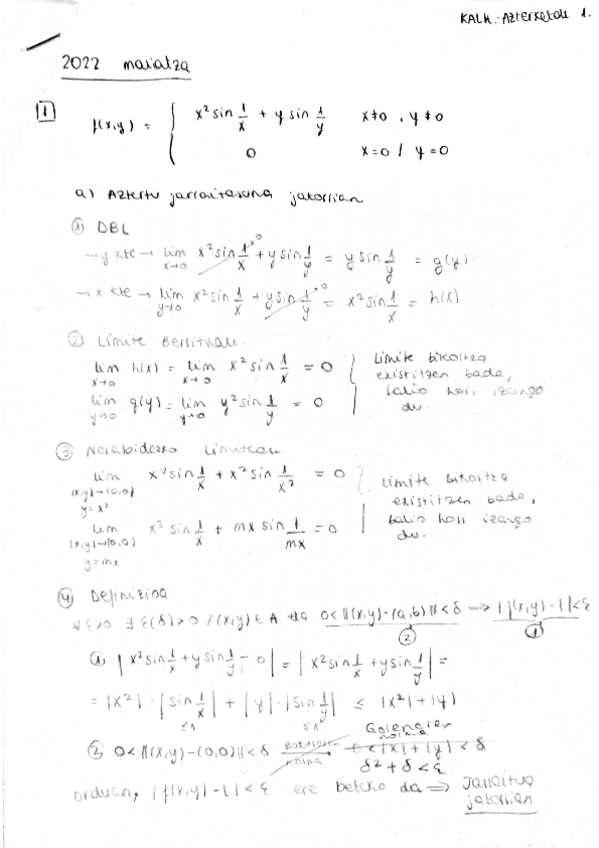 KALK. Azterketak 1.
2022 maiatza
1 f(x,y) = { x² sin 1/x + y sin 1/y x≠0, y≠0
0 x=0 / y=0
a) Aztertu jarraitasuna jatorrian
① DBL
→ y kte → lim x→0 x² sin 1/x →0 + y sin 1/y = y sin 1/y = g(y).
→ x kte → lim y→0 x² sin 1/x + y sin 1/y →0 = x² sin 1/x = h(x)
② Limite berrituak.
lim x→0 h(x) = lim x→0 x² sin 1/x = 0
lim y→0 g(y) = lim y→0 y² sin 1/y = 0
Limite bikoitza
existitzen bada,
balio hori izango
du.
③ Norabidezko limiteak
lim (x,y)→(0,0) y=x² x² sin 1/x + x² sin 1/x² = 0
lim (x,y)→(0,0) y=mx x² sin 1/x + mx sin 1/mx = 0
Limite bikoitza
existitzen bada,
balio hori izango
du.
④ Definizioa
∀ε>0 ∃ ε(δ)>0 / (x,y) ∈ A eta 0<||(x,y)-(a,b)||<δ → |f(x,y)-l|<ε
② ①
① |x² sin 1/x + y sin 1/y - 0| = |x² sin 1/x + y sin 1/y| =
= |x²| · |sin 1/x| + |y| · |sin 1/y| ≤ |x²| + |y|
≤1 ≤1
Gorengoren
norma
② 0<||(x,y)-(0,0)||<δ → 0<|x|+|y|<δ
norma δ²+δ<ε
orduan, |f(x,y)-l|<ε ere beteko da ⇒ Jarraitua
jatorrian